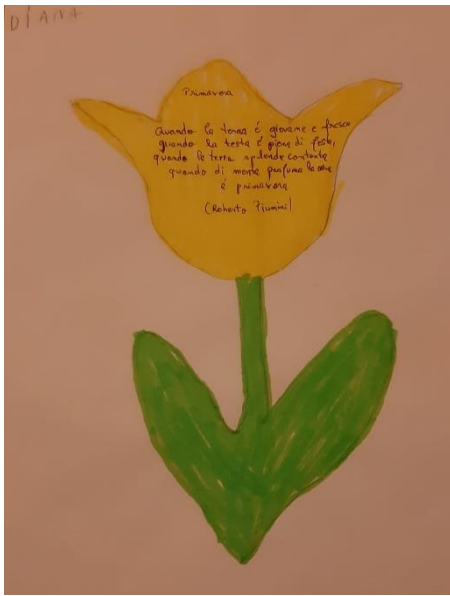 DIANA
Primavera
Quando la terra è giovane e fresca
quando la testa è piena di festa,
quando la terra splende contenta
quando di menta profuma
è primavera
(Roberto Piumini)